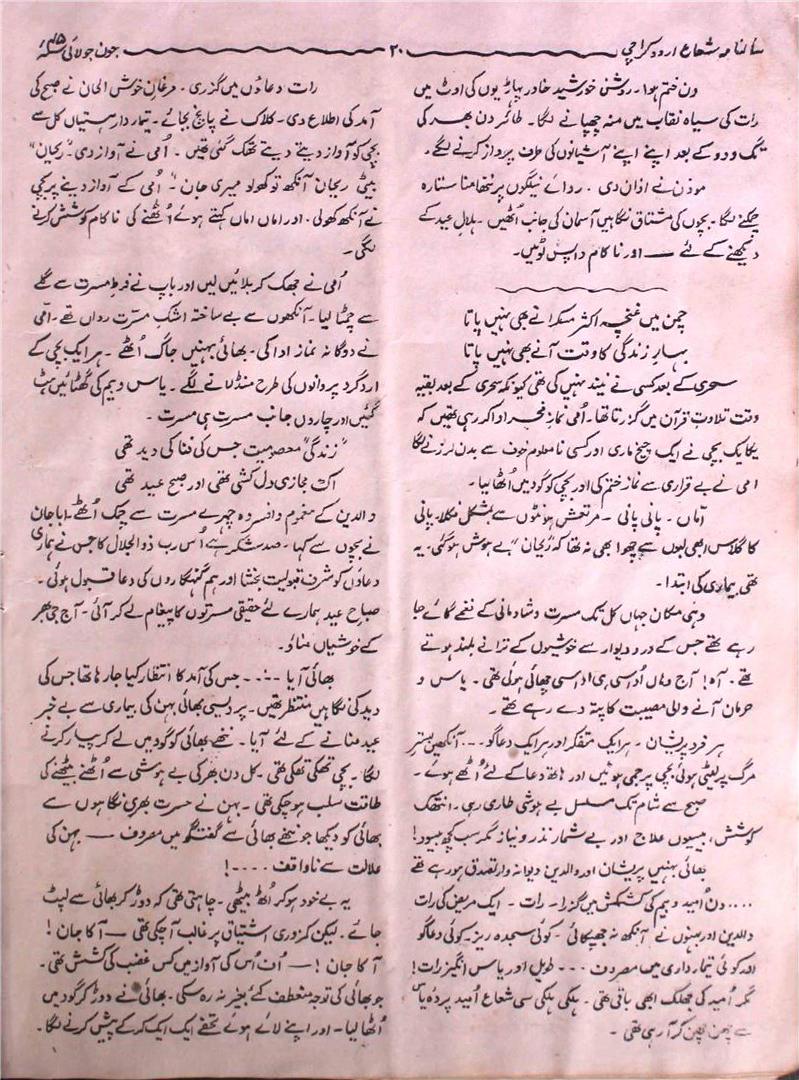 سالنامہ شعاع اردو کراچی ۲۰ جون جولائی
دن ختم ہوا۔ روشن خورشید خاور پہاڑیوں کی اوٹ میں
رات کی سیاہ نقاب میں منہ چھپانے لگا۔ طائر دن بھر کی
تگ و دو کے بعد اپنے اپنے آشیانوں کی طرف پرواز کرنے لگے۔
موذن نے اذان دی۔ ردائے نیلگوں پر ننھا منا ستارہ
چمکنے لگا۔ بچوں کی مشتاق نگاہیں آسمان کی جانب اُٹھیں۔ ہلالِ عید کے
دیکھنے کے لئے — اور ناکام واپس لوٹیں۔
چمن میں غنچہ اکثر مسکرانے بھی نہیں پاتا
بہارِ زندگی کا وقت آنے بھی نہیں پاتا
سحری کے بعد کسی نے نیند نہیں کی تھی کیونکہ سحری کے بعد بقیہ
وقت تلاوتِ قرآن میں گزرتا تھا۔ اُمی نمازِ فجر ادا کر رہی تھیں کہ
یکایک بچی نے ایک چیخ ماری اور کسی نامعلوم خوف سے بدن لرزنے لگا
امی نے بے قراری سے نماز ختم کی اور بچی کو گود میں اُٹھا لیا۔
اماں۔ پانی پانی۔ مرتعش ہونٹوں سے بمشکل نکلا۔ پانی
کا گلاس ابھی لبوں سے چھوا بھی نہ تھا کہ ریحان "بے ہوش ہو گئی۔ یہ
تھی بیماری کی ابتدا۔
وہی مکان جہاں کل تک مسرت و شادمانی کے نغمے گائے جا
رہے تھے جس کے در و دیوار سے خوشیوں کے ترانے بلند ہوتے
تھے۔ آہ! آج وہاں اُداسی ہی اُداسی چھائی ہوئی تھی۔ یاس و
حرمان آنے والی مصیبت کا پتہ دے رہے تھے۔
ہر فرد پریشان۔ ہر ایک متفکر اور ہر ایک دعاگو... آنکھیں بسترِ
مرگ پر لیٹی ہوئی بچی پر جمی ہوئیں اور ہاتھ دعا کے لئے اُٹھے ہوئے۔
صبح سے شام تک مسلسل بے ہوشی طاری رہی۔ انتھک
کوشش، بیسیوں علاج اور بے شمار نذر و نیاز مگر سب کچھ بیسود!
بھائی بہنیں پریشان اور والدین دیوانہ وار تصدق ہو رہے تھے
.... دن اُمید و بیم کی کشمکش میں گزرا۔ رات۔ ایک مریض کی رات
والدین اور بہنوں نے آنکھ نہ جھپکائی۔ کوئی سجدہ ریز۔ کوئی دعاگو
اور کوئی تیمارداری میں مصروف... طویل اور یاس انگیز رات!
مگر اُمید کی جھلک ابھی باقی تھی۔ ہلکی ہلکی سی شعاعِ اُمید پردہ یاس
سے چھن چھن کر آ رہی تھی۔
رات دعاؤں میں گزری۔ مرغانِ خوش الحان نے صبح کی
آمد کی اطلاع دی۔ کلاک نے پانچ بجائے۔ تیماردار ہستیاں کل سے
بچی کو آواز دیتے دیتے تھک گئی تھیں۔ اُمی نے آواز دی "ریحان"
بیٹی ریحان آنکھ تو کھولو میری جان"۔ اُمی کے آواز دینے پر بچی
نے آنکھ کھولی۔ اور اماں اماں کہتے ہوئے اُٹھنے کی ناکام کوشش کرنے
لگی۔
اُمی نے جھک کر بلائیں لیں اور باپ نے فرطِ مسرت سے گلے
سے چمٹا لیا۔ آنکھوں سے بے ساختہ اشکِ مسرت رواں تھے۔ امی
نے دوگانہ نماز ادا کی۔ بھائی بہنیں جاگ اُٹھے۔ ہر ایک بچی کے
اردگرد پروانوں کی طرح منڈلانے لگے۔ یاس و بیم کی گھٹائیں ہٹ
گئیں اور چاروں جانب مسرت ہی مسرت۔
"زندگی" معصومیت جس کی فنا کی دید تھی
اک مجازی دل کشی تھی اور صبح عید تھی
والدین کے مغموم و افسردہ چہرے مسرت سے چمک اُٹھے۔ ابا جان
نے بچوں سے کہا۔ صد شکر ہے اُس رب ذوالجلال کا جس نے ہماری
دعاؤں کو شرفِ قبولیت بخشا اور ہم گنہگاروں کی دعا قبول ہوئی۔
صباحِ عید ہمارے لئے حقیقی مسرتوں کا پیغام لے کر آئی۔ آج جی بھر
کے خوشیاں مناؤ۔
بھائی آیا .... جس کی آمد کا انتظار کیا جا رہا تھا جس کی
دید کی نگاہیں منتظر تھیں۔ پردیسی بھائی بہن کی بیماری سے بے خبر
عید منانے کے لئے آیا۔ ننھے بھائی کو گود میں لے کر پیار کرنے
لگا۔ بچی تھکی تھکی تھی۔ کل دن بھر کی بے ہوشی سے اُٹھنے بیٹھنے کی
طاقت سلب ہو چکی تھی۔ بہن نے حسرت بھری نگاہوں سے
بھائی کو دیکھا جو ننھے بھائی سے گفتگو میں مصروف — بہن کی
علالت سے ناواقف ....!
یہ بے خود ہو کر اُٹھ بیٹھی۔ چاہتی تھی کہ دوڑ کر بھائی سے لپٹ
جائے۔ لیکن کمزوری اشتیاق پر غالب آ چکی تھی — آکا جان!
آکا جان! — اُف اُس کی آواز میں کس غضب کی کشش تھی۔
جو بھائی کی توجہ منعطف کئے بغیر نہ رہ سکی۔ بھائی نے دوڑ کر گود میں
اُٹھا لیا۔ اور اپنے لائے ہوئے تحفے ایک ایک کر کے پیش کرنے لگا۔